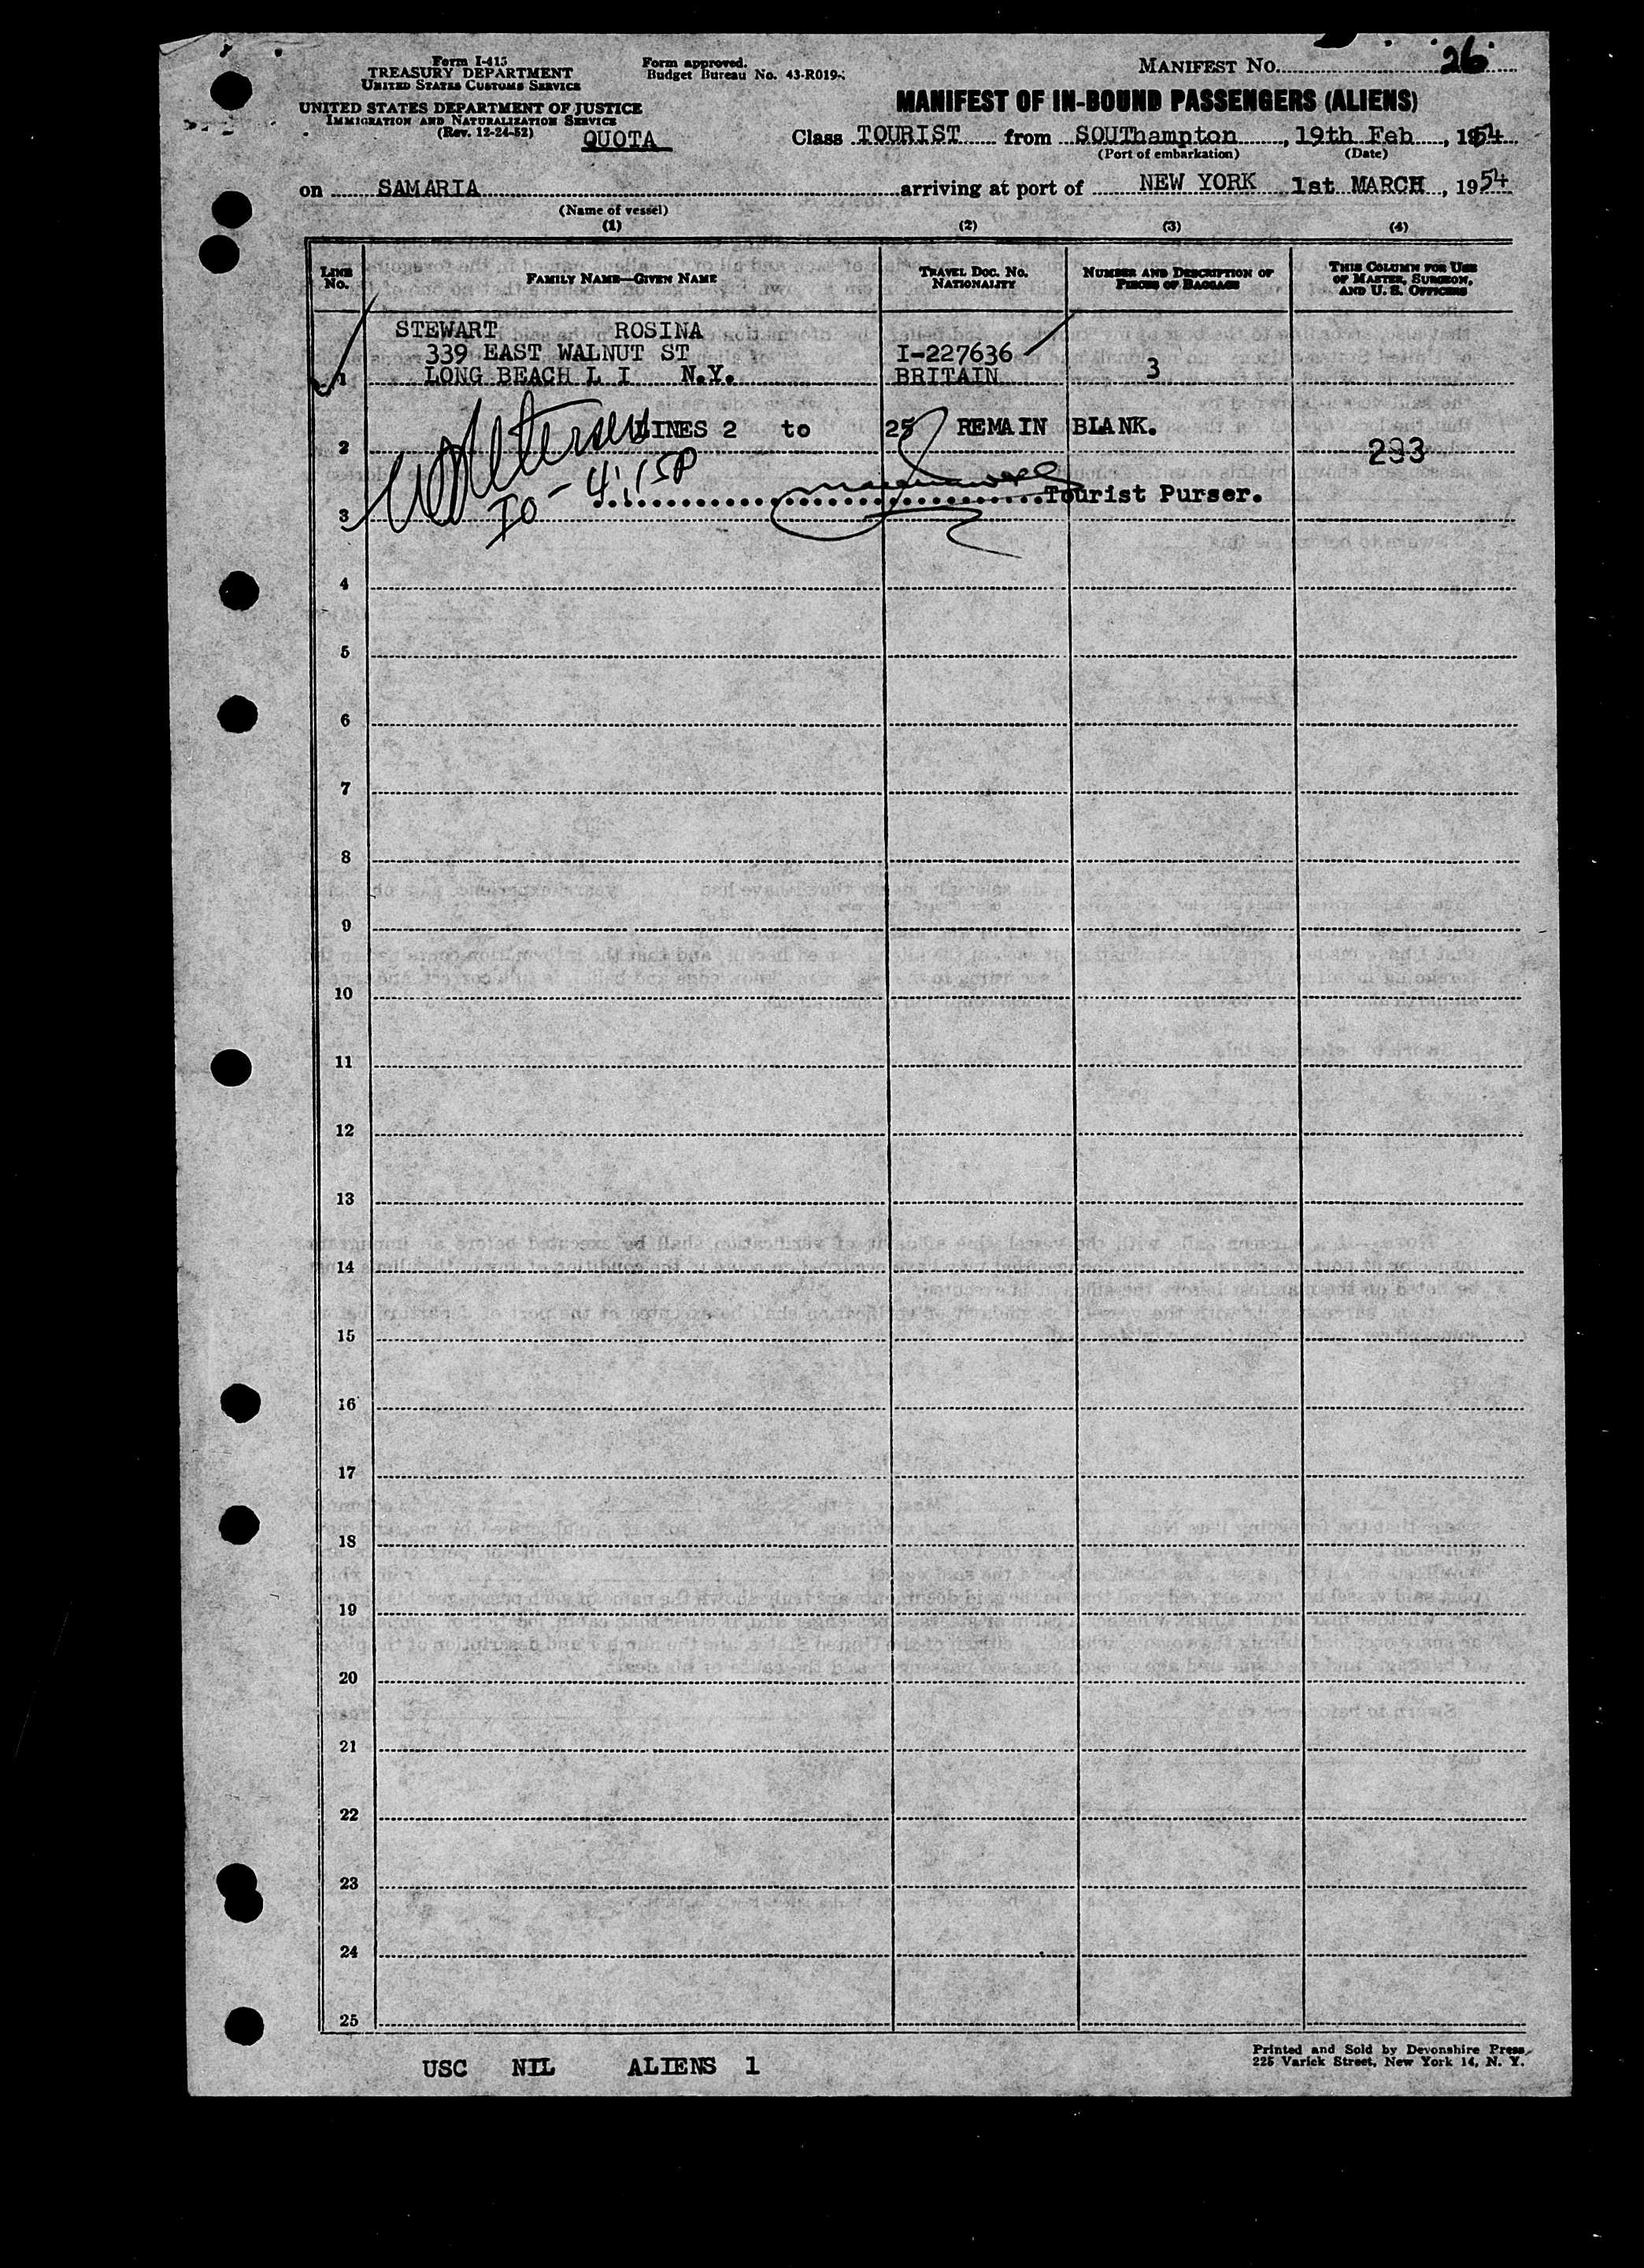 Form I-415
TREASURY DEPARTMENT
UNITED STATES CUSTOMS SERVICE
UNITED STATES DEPARTMENT OF JUSTICE
IMMIGRATION AND NATURALIZATION SERVICE
(Rev. 12-24-52)
QUOTA
Form approved.
Budget Bureau No. 43-R019-
MANIFEST NO. 26
MANIFEST OF IN-BOUND PASSENGERS (ALIENS)
Class TOURIST from SOUThampton, 19th Feb, 1954
(Port of embarkation) (Date)
on SAMARIA arriving at port of NEW YORK 1st MARCH, 1954
(Name of vessel)
(1) (2) (3) (4)
LINE NO. FAMILY NAME—GIVEN NAME TRAVEL DOC. NO. NATIONALITY NUMBER AND DESCRIPTION OF PIECES OF BAGGAGE THIS COLUMN FOR USE OF MASTER, SURGEON, AND U. S. OFFICERS
STEWART ROSINA
339 EAST WALNUT ST I-227636
1 LONG BEACH L I N.Y. BRITAIN 3
LINES 2 to 25 REMAIN BLANK.
2 233
IO - 4:15P
3 Tourist Purser.
4
5
6
7
8
9
10
11
12
13
14
15
16
17
18
19
20
21
22
23
24
25
USC NIL ALIENS 1
Printed and Sold by Devonshire Press
225 Varick Street, New York 14, N. Y.